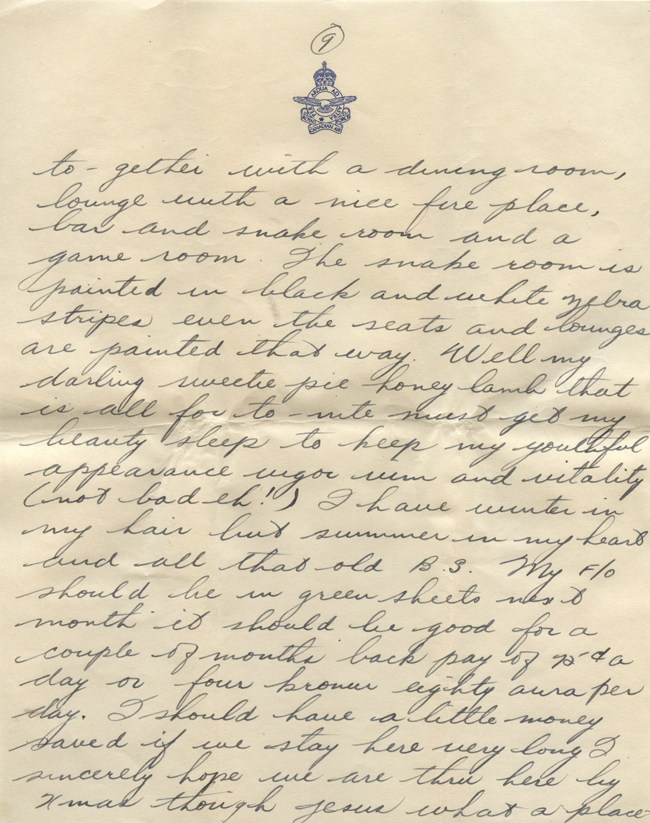 9
PER ARDUA AD ASTRA
ROYAL CANADIAN AIR FORCE
to-gether with a dining room,
lounge with a nice fire place,
bar and snake room and a
game room. The snake room is
painted in black and white zebra
stripes even the seats and lounges
are painted that way. Well my
darling sweetie pie honey lamb that
is all for to-nite must get my
beauty sleep to keep my youthful
appearance vigor vim and vitality
(not bad eh!) I have winter in
my hair but summer in my heart
and all that old B.S. My F/O
should be in green sheets next
month it should be good for a
couple of months back pay of a
day or four kronur eighty aura per
day. I should have a little money
saved if we stay here very long I
sincerely hope we are thru here by
Xmas though jesus what a place